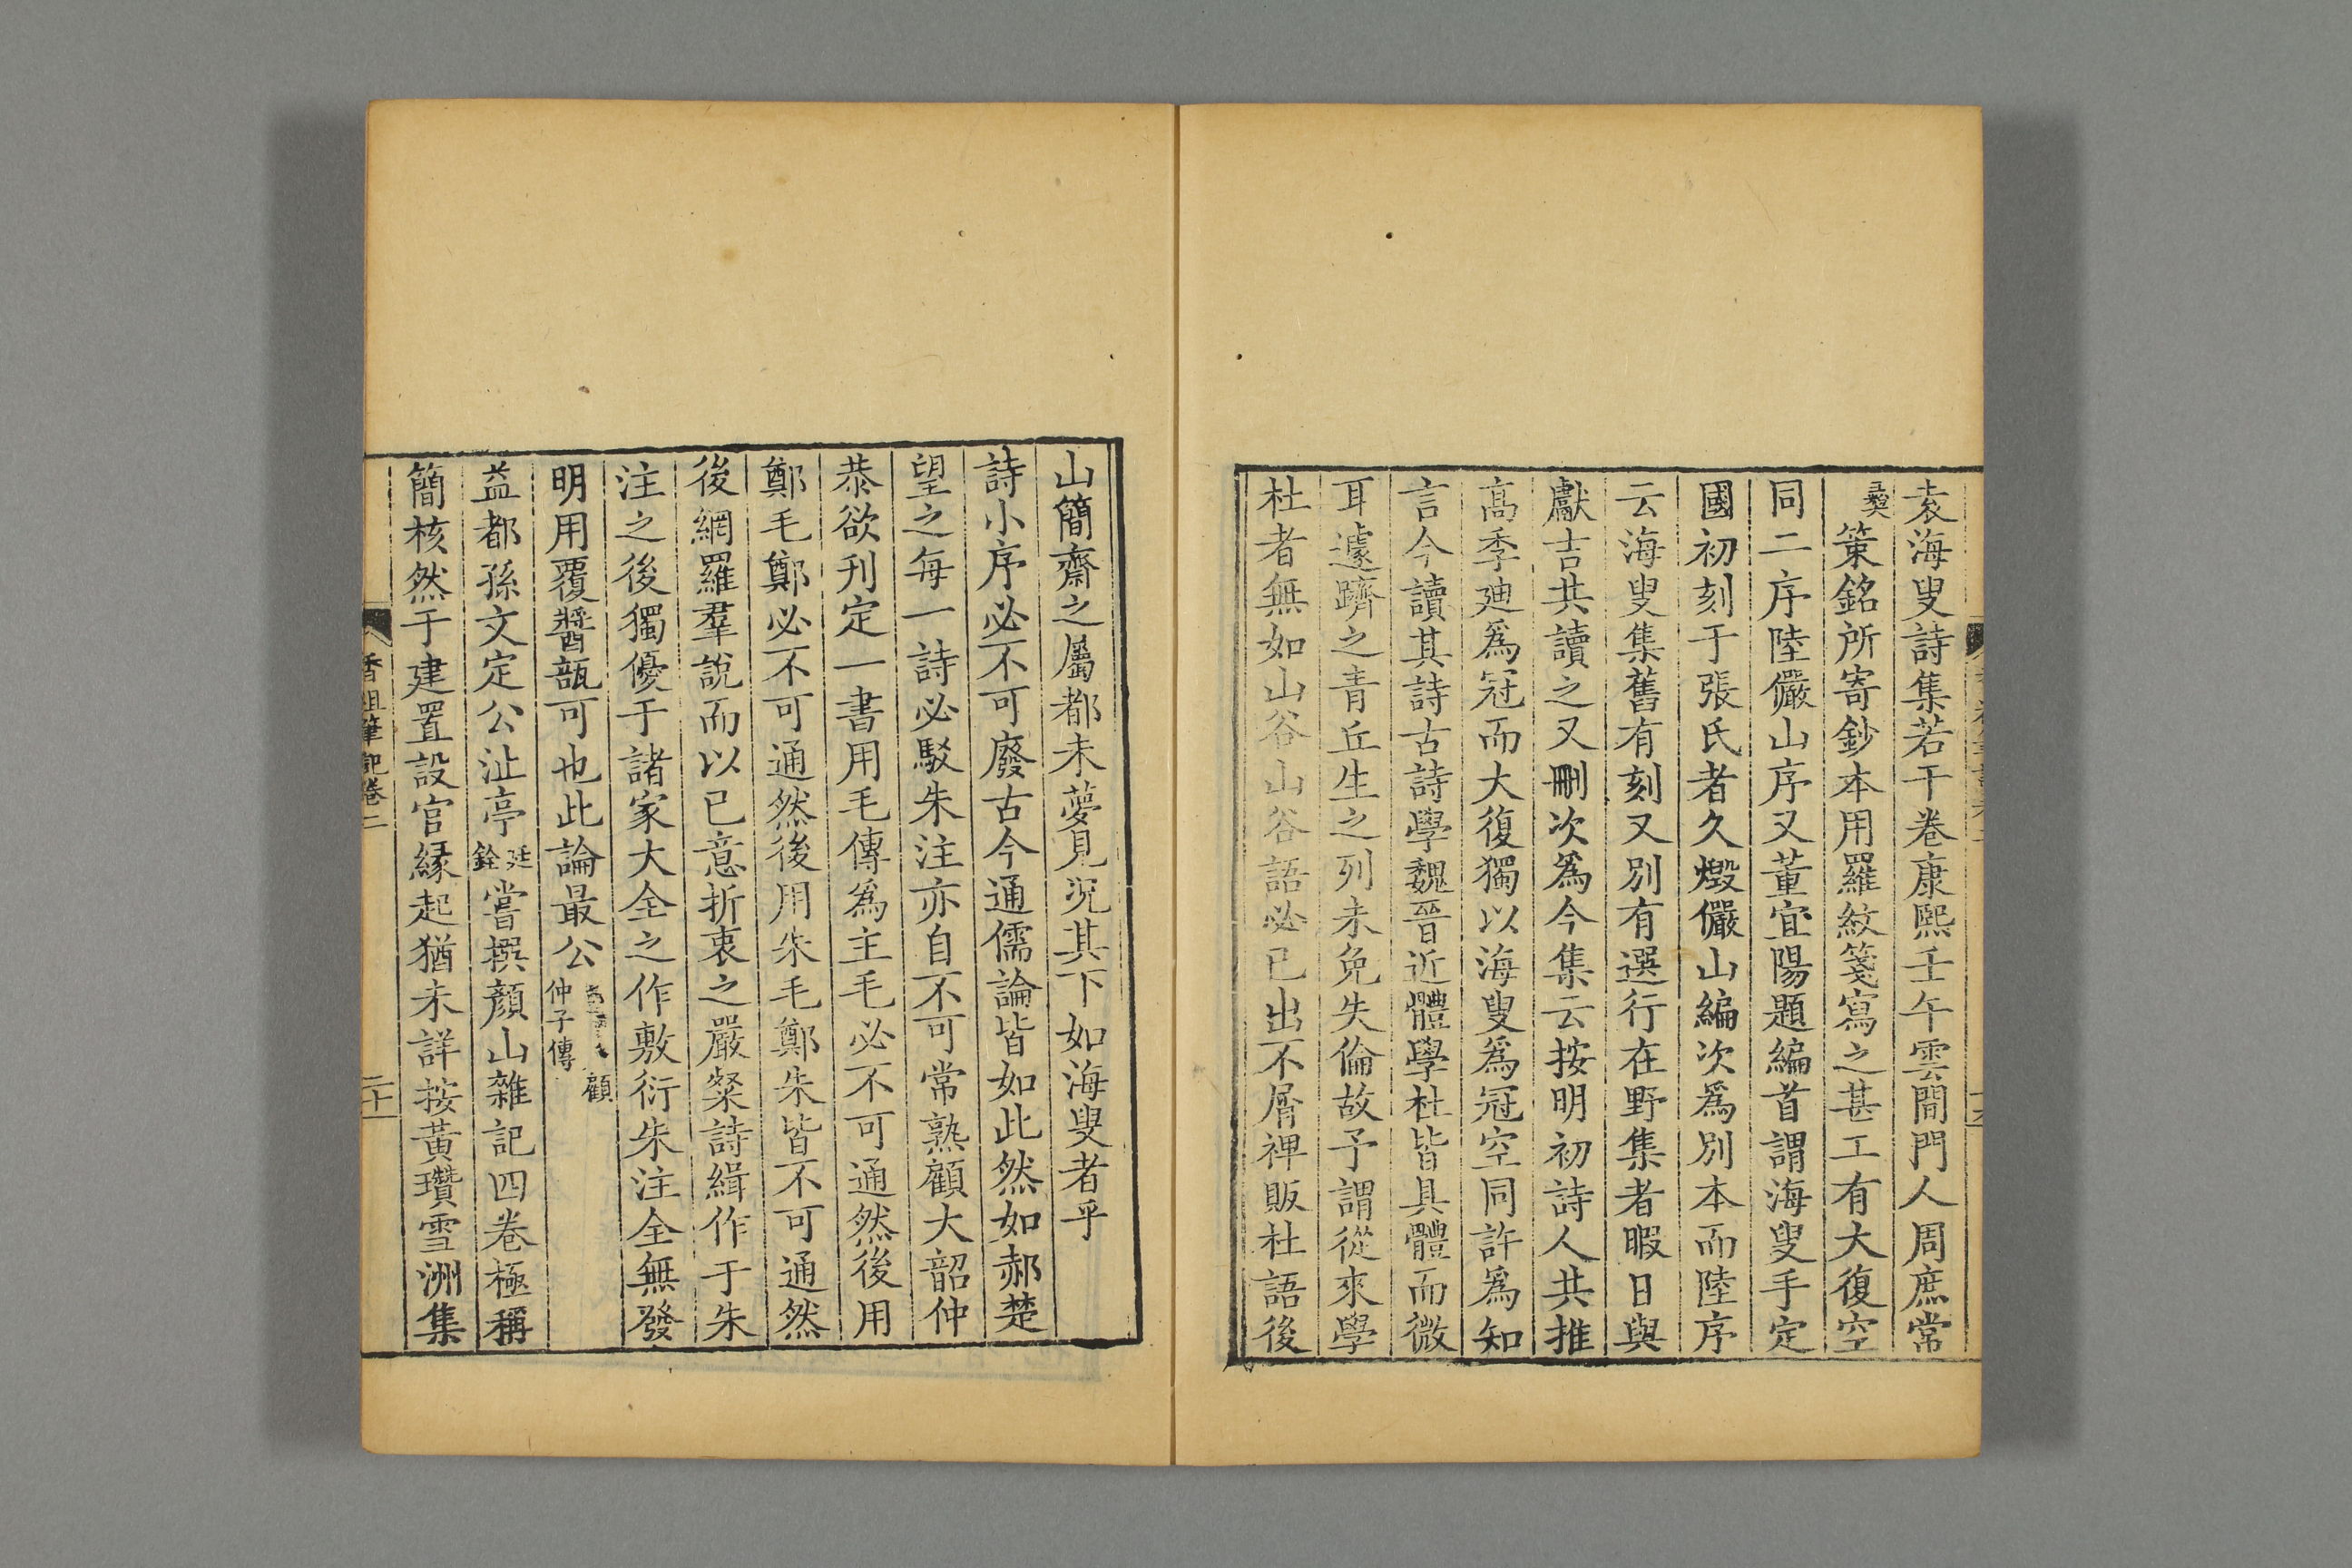 袁海叟詩集若干卷康熙壬午雲間門人周庶常
彛策銘所寄鈔本用羅紋箋寫之甚工有大復空
同二序陸儼山序又董宜陽題編首謂海叟手定
國初刻于張氏者久燬儼山編次爲別本而陸序
云海叟集舊有刻又別有選行在野集者暇日與
獻吉共讀之又刪次爲今集云按明初詩人共推
高季廸爲冠而大復獨以海叟爲冠空同許爲知
言今讀其詩古詩學魏晉近體學杜皆具體而微
耳遽躋之青丘生之列未免失倫故予謂從來學
杜者無如山谷山谷語必已出不屑裨販杜語後
山簡齋之屬都未夢見況其下如海叟者乎
詩小序必不可廢古今通儒論皆如此然如郝楚
望之每一詩必駁朱注亦自不可常熟顧大韶仲
恭欲刋定一書用毛傳爲主毛必不可通然後用
鄭毛鄭必不可通然後用朱毛鄭朱皆不可通然
後網羅羣說而以已意折衷之嚴粲詩緝作于朱
注之後獨優于諸家大全之作敷衍朱注全無發
明用覆醬瓿可也此論最公顧
仲子傳
益都孫文定公沚亭廷銓嘗撰顏山雜記四卷極稱
簡核然于建置設官縁起猶未詳按黃瓚雪洲集
香祖筆記卷二
二十